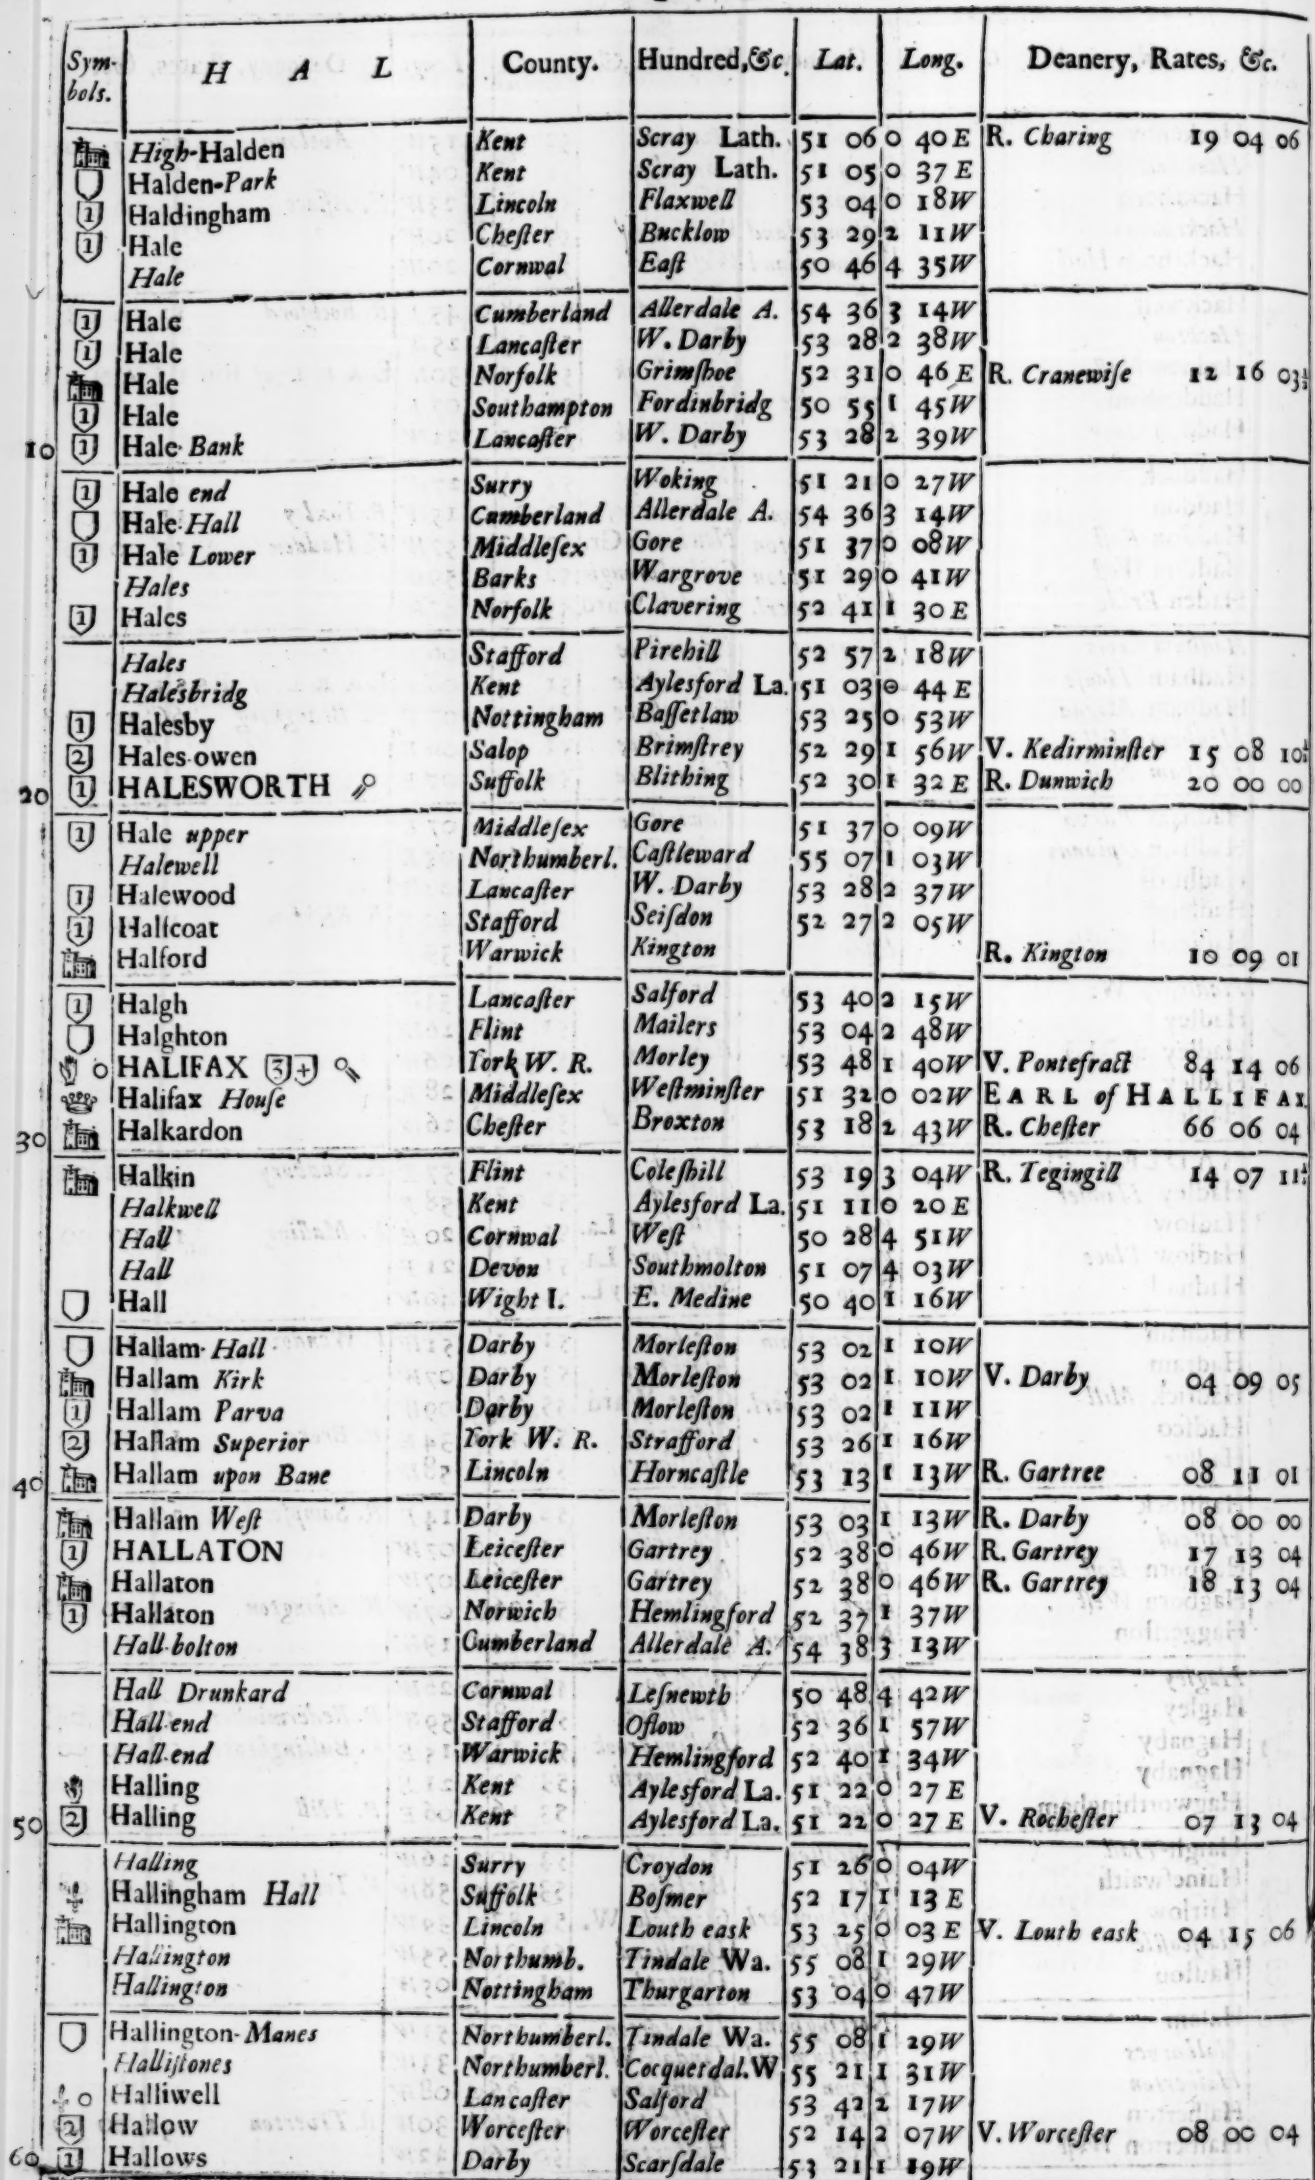 Sym-bols. H A L County. Hundred,&c. Lat. Long. Deanery, Rates, &c.
High-Halden Kent Scray Lath. 51 06 0 40 E R. Charing 19 04 06
Halden-Park Kent Scray Lath. 51 05 0 37 E
1 Haldingham Lincoln Flaxwell 53 04 0 18 W
1 Hale Cheſter Bucklow 53 29 2 11 W
Hale Cornwal Eaſt 50 46 4 35 W
1 Hale Cumberland Allerdale A. 54 36 3 14 W
1 Hale Lancaſter W. Darby 53 28 2 38 W
Hale Norfolk Grimſhoe 52 31 0 46 E R. Cranewiſe 12 16 03½
1 Hale Southampton Fordinbridg 50 55 1 45 W
10 1 Hale-Bank Lancaſter W. Darby 53 28 2 39 W
1 Hale end Surry Woking 51 21 0 27 W
Hale-Hall Cumberland Allerdale A. 54 36 3 14 W
1 Hale Lower Middleſex Gore 51 37 0 08 W
Hales Barks Wargrove 51 29 0 41 W
1 Hales Norfolk Clavering 52 41 1 30 E
Hales Stafford Pirehill 52 57 2 18 W
Halesbridg Kent Aylesford La. 51 03 0 44 E
1 Halesby Nottingham Baſſetlaw 53 25 0 53 W
2 Hales-owen Salop Brimſtrey 52 29 1 56 W V. Kedirminſter 15 08 10½
20 1 HALESWORTH Suffolk Blithing 52 30 1 32 E R. Dunwich 20 00 00
1 Hale upper Middleſex Gore 51 37 0 09 W
Halewell Northumberl. Caſtleward 55 07 1 03 W
1 Halewood Lancaſter W. Darby 53 28 2 37 W
1 Halfcoat Stafford Seiſdon 52 27 2 05 W
Halford Warwick Kington R. Kington 10 09 01
1 Halgh Lancaſter Salford 53 40 2 15 W
Halghton Flint Mailers 53 04 2 48 W
HALIFAX 3 + York W. R. Morley 53 48 1 40 W V. Pontefract 84 14 06
Halifax Houſe Middleſex Weſtminſter 51 32 0 02 W EARL of HALLIFAX
30 Halkardon Cheſter Broxton 53 18 2 43 W R. Cheſter 66 06 04
Halkin Flint Coleſhill 53 19 3 04 W R. Tegingill 14 07 11½
Halkwell Kent Aylesford La. 51 11 0 20 E
Hall Cornwal Weſt 50 28 4 51 W
Hall Devon Southmolton 51 07 4 03 W
Hall Wight I. E. Medine 50 40 1 16 W
Hallam-Hall Darby Morleſton 53 02 1 10 W
Hallam Kirk Darby Morleſton 53 02 1 10 W V. Darby 04 09 05
1 Hallam Parva Darby Morleſton 53 02 1 11 W
2 Hallam Superior York W. R. Strafford 53 26 1 16 W
40 Hallam upon Bane Lincoln Horncaſtle 53 13 1 13 W R. Gartree 08 11 01
Hallam Weſt Darby Morleſton 53 03 1 13 W R. Darby 08 00 00
1 HALLATON Leiceſter Gartrey 52 38 0 46 W R. Gartrey 17 13 04
Hallaton Leiceſter Gartrey 52 38 0 46 W R. Gartrey 18 13 04
1 Hallaton Norwich Hemlingford 52 37 1 37 W
Hall-bolton Cumberland Allerdale A. 54 38 3 13 W
Hall Drunkard Cornwal Leſnewth 50 48 4 42 W
Hall-end Stafford Oflow 52 36 1 57 W
Hall-end Warwick Hemlingford 52 40 1 34 W
Halling Kent Aylesford La. 51 22 0 27 E
50 2 Halling Kent Aylesford La. 51 22 0 27 E V. Rocheſter 07 13 04
Halling Surry Croydon 51 26 0 04 W
Hallingham Hall Suffolk Boſmer 52 17 1 13 E
Hallington Lincoln Louth eask 53 25 0 03 E V. Louth eask 04 15 06
Hallington Northumb. Tindale Wa. 55 08 1 29 W
Hallington Nottingham Thurgarton 53 04 0 47 W
Hallington-Manes Northumberl. Tindale Wa. 55 08 1 29 W
Halliſtones Northumberl. Cocquetdal. W 55 21 1 31 W
Halliwell Lancaſter Salford 53 42 2 17 W
2 Hallow Worceſter Worceſter 52 14 2 07 W V. Worceſter 08 00 04
60 1 Hallows Darby Scarſdale 53 21 1 19 W